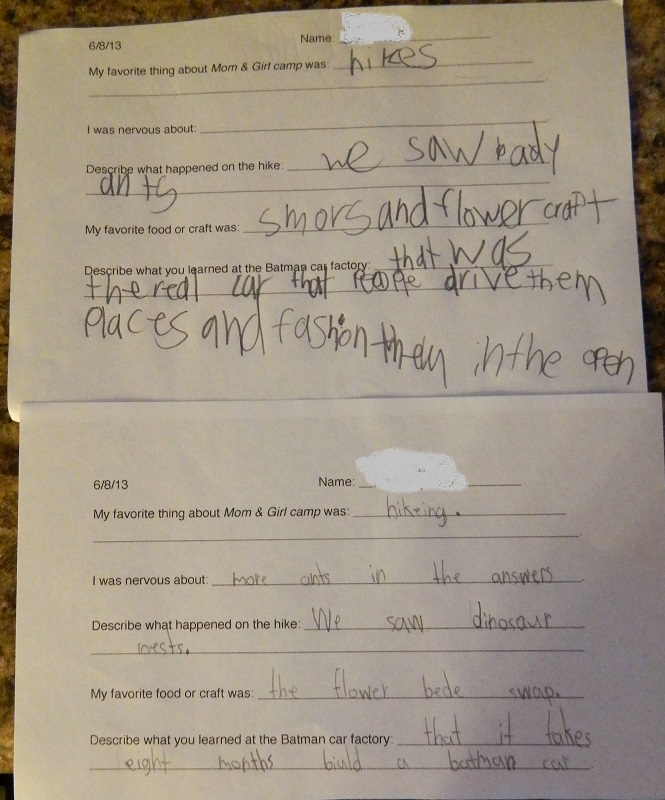 6/8/13 Name:
My favorite thing about Mom & Girl camp was: hikes
I was nervous about:
Describe what happened on the hike: we saw bady
ants
My favorite food or craft was: smors and flower craft
Describe what you learned at the Batman car factory: that was
the real car that people drive them
places and fashion them in the open
6/8/13 Name:
My favorite thing about Mom & Girl camp was: hikeing.
I was nervous about: more ants in the answers
Describe what happened on the hike: We saw dinosaur
nests.
My favorite food or craft was: the flower bede swap.
Describe what you learned at the Batman car factory: that it takes
eight months biuld a batman car